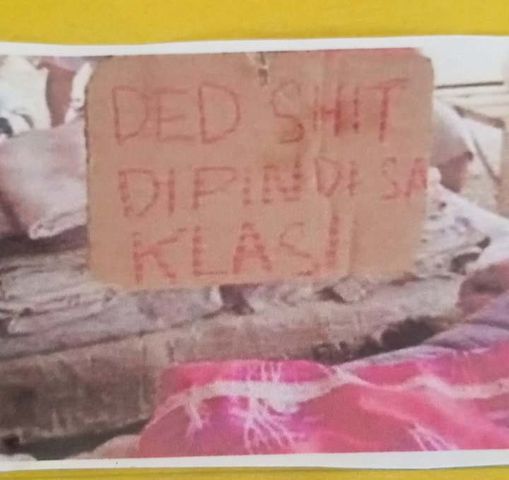 DED SHIT
DIPINDI SA
KLAS!